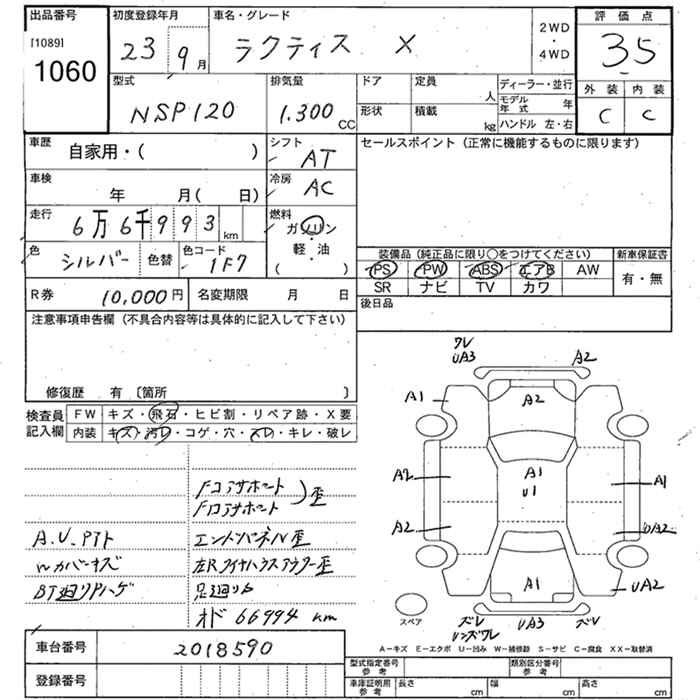 出品番号
[1089]
1060
初度登録年月
23 9月
車名・グレード
ラクティス X
2WD
・
4WD
評価点
3.5
外装 内装
C C
型式
NSP120
排気量
1.300cc
ドア 定員 人
形状 積載 kg
ディーラー・並行
モデル年式 年
ハンドル 左・右
車歴
自家用・( )
シフト
AT
セールスポイント (正常に機能するものに限ります)
車検
年 月( 日)
冷房
AC
走行
6万6千993km
燃料
ガソリン
軽・油
( )
色
シルバー 色替
色コード
1F7
装備品 (純正品に限り○をつけてください) 新車保証書
PS PW ABS エアB AW 有・無
SR ナビ TV カワ
R券 10,000円 名変期限 月 日
後日品
注意事項申告欄 (不具合内容等は具体的に記入して下さい)
修復歴 有 〔箇所 〕
検査員記入欄
FW キズ・飛石・ヒビ割・リペア跡・X要
内装 キズ・汚レ・コゲ・穴・スレ・キレ・破レ
Fコアサポート
Fロアサポート
)歪
エンドパネル歪
左Rタイヤハウスアウター歪
足廻りサ
オド 66994 km
ワレ
UA3 A2
A1 A2
A2 A1 A1
U1
A2 UA2
A1 UA2
スペア
ズレ UA3 ズレ
A-キズ E-エクボ U-凹み W-補修跡 S-サビ C-腐食 XX-取替済
車台番号 2018590
登録番号
型式指定番号 参考 類別区分番号 参考
車庫証明用 参考 長さ cm 幅 cm 高さ cm